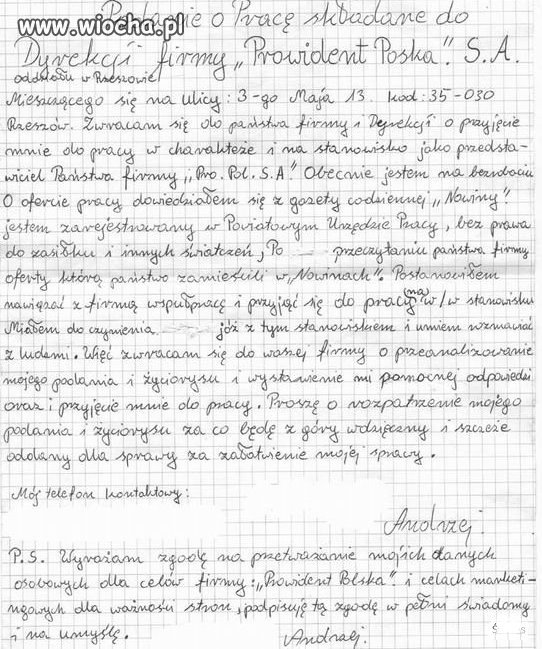 www.wiocha.pl
Podanie o Pracę składane do
Dyrekcji firmy „Prowident Poska". S.A.
oddziału w Rzeszowie
Mieszczącego się na ulicy: 3-go Maja 13. kod: 35-030
Rzeszów. Zwracam się do państwa firmy i Dyrekcji o przyjęcie
mnie do pracy w charakteże i na stanowisko jako przedsta-
wiciel Państwa firmy „Pro. Pol. S.A". Obecnie jestem na bezrobociu
O ofercie pracy dowiedziałem się z gazety codziennej „Nowiny".
jestem zarejestrowany w Powiatowym Urzędzie Pracy, bez prawa
do zasiłku i innych światczeń, Po przeczytaniu państwa firmy
oferty którą państwo zamieścili w „Nowinach". Postanowiłem
nawiązać z firmą współpracę i przyjąć się do pracy (na) w/w stanowisku
Miałem do czynienia jóż z tym stanowiskiem i umiem rozmawiać
z ludzmi. Więć zwracam się do waszej firmy o przeanalizowanie
mojego podania i życiorysu i wystawienie mi pomocnej odpowiedzi
oraz i przyjęcie mnie do pracy. Proszę o rozpatrzenie mojego
podania i życiorysu za co będę z góry wdzięczny i szczeże
oddany dla sprawy za załatwienie mojéj sprawy.
Mój telefon kontaktowy:
Andrzej.
P.S. Wyrażam zgodę na przetważanie mojich danych
osobowych dla celów firmy: „Prowident Polska". i celach marketi-
ngowych dla ważności stron, podpisuję tą zgodę w pełni świadomy
i na umyślę.
Andrzej.